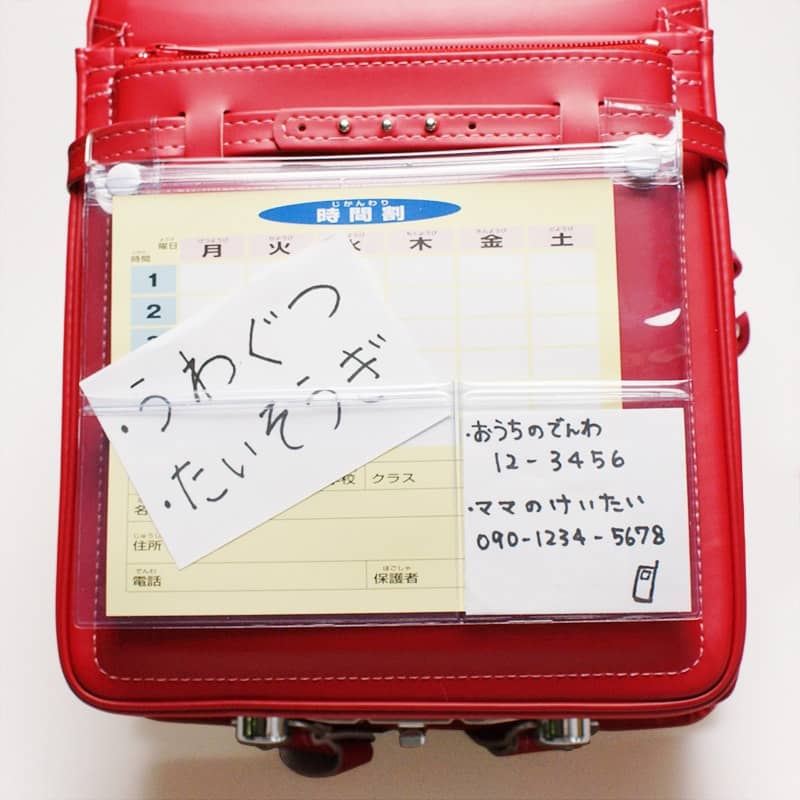 じかんわり
時間割
ようび
曜日 月 火 水 木 金 土
時間
1
2
・うわぐつ
・たいそうぎ
・おうちのでんわ
12-3456
・ママのけいたい
090-1234-5678
校 クラス
名
じゅうしょ
住所
でんわ ほごしゃ
電話 保護者